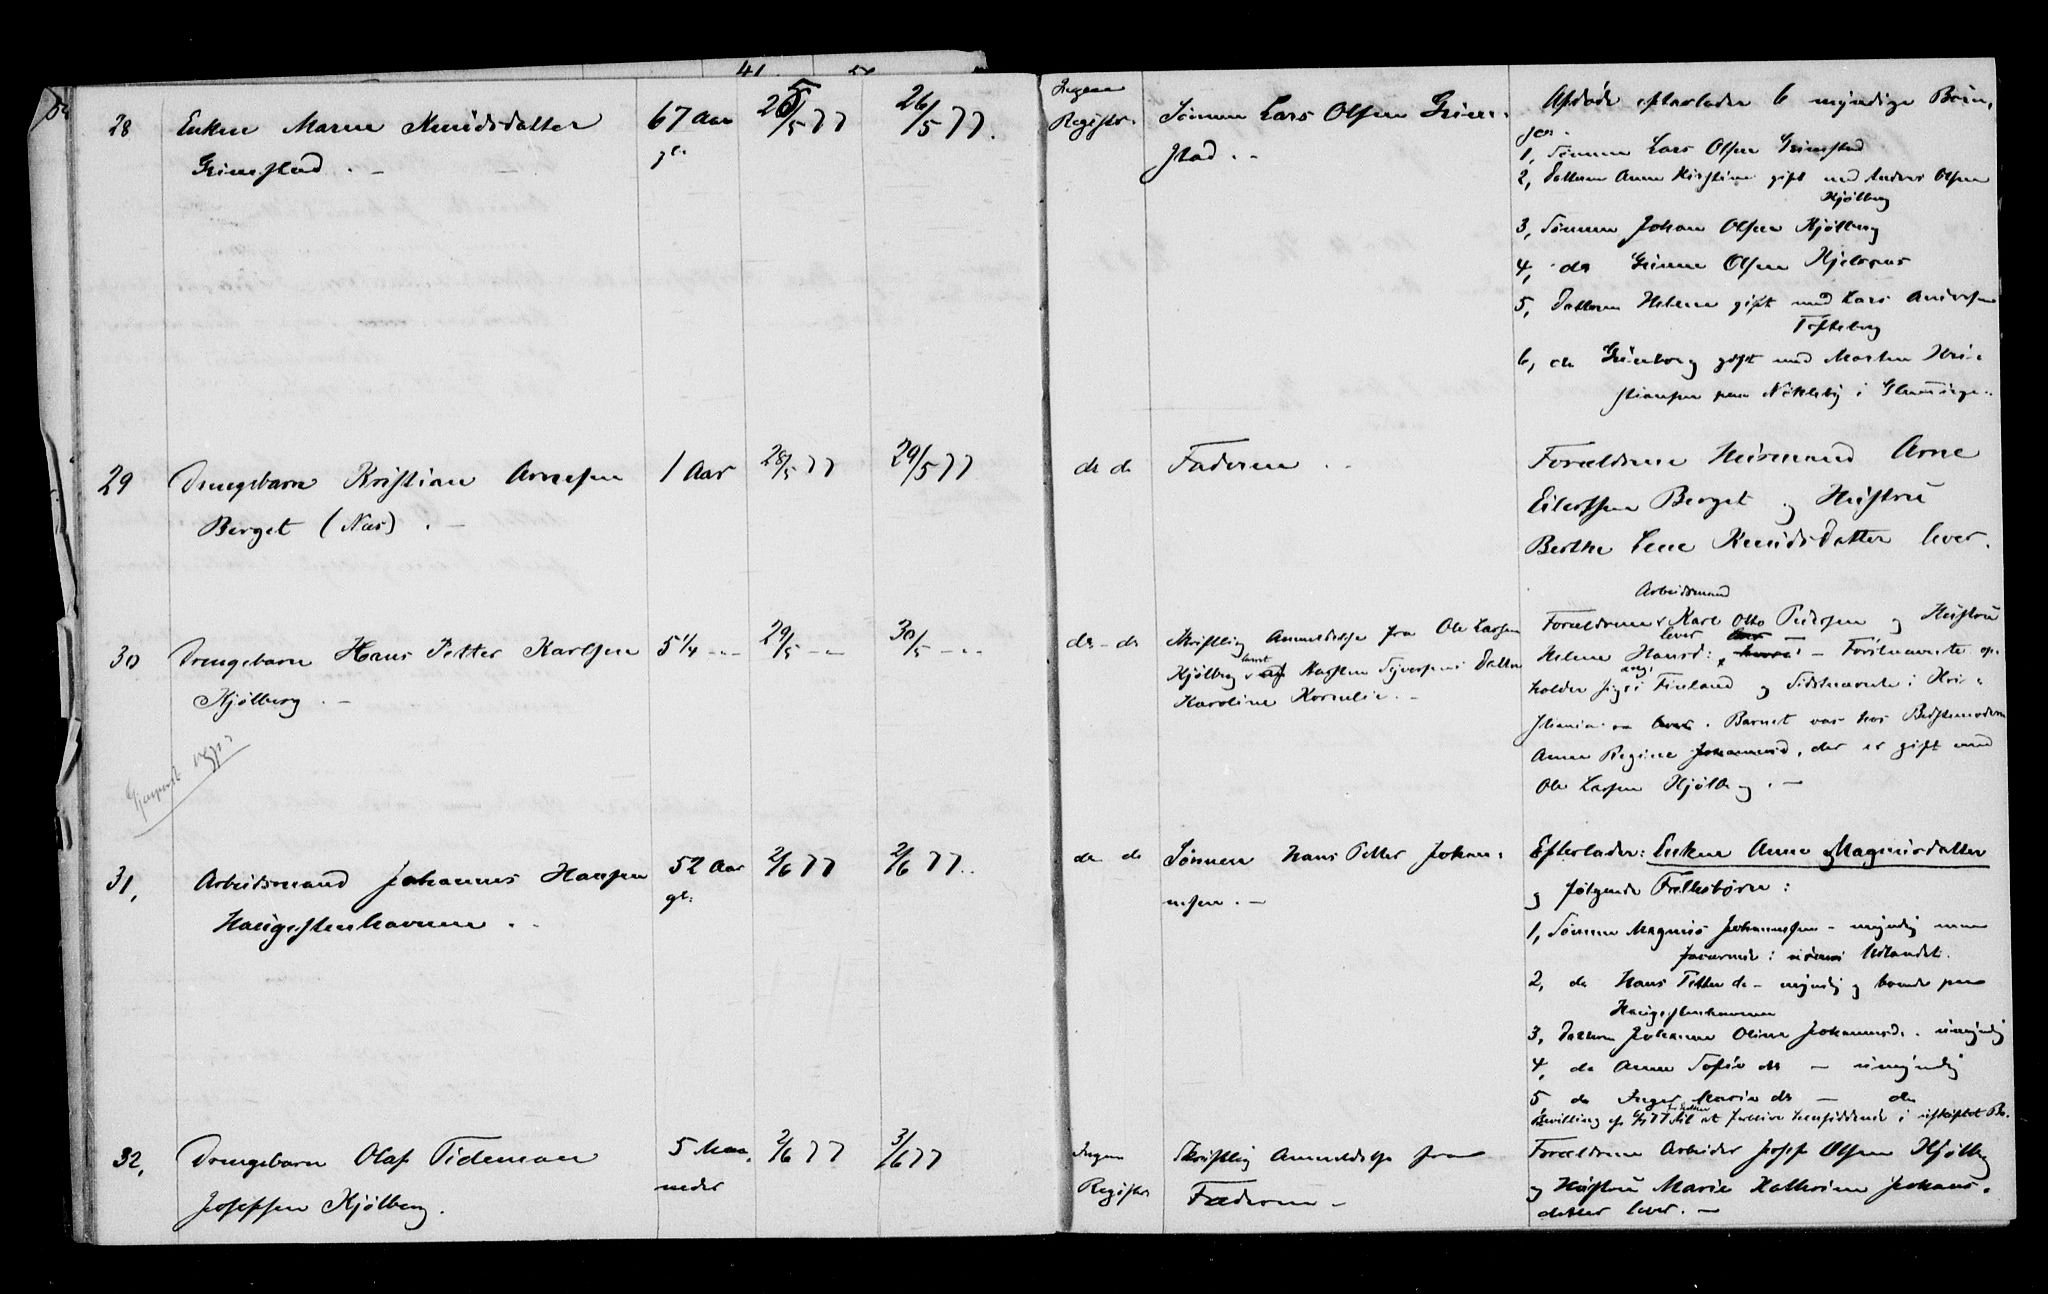 41
28
Enken Maren Knudsdatter
Grimstad . -
67 Aar
gl.
25/5 77
26/5 77.
Ingen
Registr.
Sønnen Lars Olsen Grim-
stad . -
Afdøde efterlader 6 myndige Børn,
1, Sønnen Lars Olsen Grimstad
2, Datteren Anne Kirstine gift med Anders Olsen
Kjølberg
3, Sønnen Johan Olsen Kjølberg
4, do Grimme Olsen
5, Datteren Helene gift med Lars Andersen
Tofteberg
6, do gift med Martin Kri-
stiansen paa Nøkleby i Glemminge.
29
Drengebarn Kristian Arnesen
Berget (Næs) . -
1 Aar
28/5 77
29/5 77
do do
Faderen . .
Forældrene Huusmand Arne
Eilertsen Berget og Hustru
Berthe Lene Knudsdatter lever.
30
Drengebarn Hans Petter Karlsen
Kjølberg . -
5 1/4 - -
29/5 - -
30/5 - -
do - do
Skriftlig Anmeldelse fra Ole Larsen
Kjølberg Karsten Syversens Datter
Karoline Kornelie . -
Arbeidsmand
Forældrene Karl Otto Pedersen og Hustru
Helene Hansd: lever - Førstnævnte op-
holder sig i Finland og Sidstnævnte i Kri-
stiania. Barnet var hos Bedstemoderen
Anne Regine Johannesd, der er gift med
Ole Larsen Kjølberg . -
31,
Arbeidsmand Johannes Hansen
Haugestenhavnen . .
52 Aar
gl.
2/6 77
2/6 77.
do do
Sønnen Hans Petter Johan-
nesen . -
Efterlader: Enken Anne Magnusdatter
og følgende Fællesbørn :
1, Sønnen Magnus Johannesen - myndig men
fraværende i Udlandet.
2, do Hans Petter do - myndig og boende paa
Haugestenhavnen
3, Datteren Johanne Oline Johannesd. umyndig
4, do Anne Sofie do - umyndig
5 do Inger Marie do - do
Bevilling af 4/7 77 til at forblive hensiddende i uskiftet Bo.
32,
Drengebarn Olaf Tideman
Josefsen Kjølberg.
5 Maa-
neder
2/6 77
3/6 77
Ingen
Registr.
Skriftlig Anmeldelse fra
Faderen -
Forældrene Arbeider Josef Olsen Kjølberg
og Hustru Marie Kathrine Johans-
datter lever. -